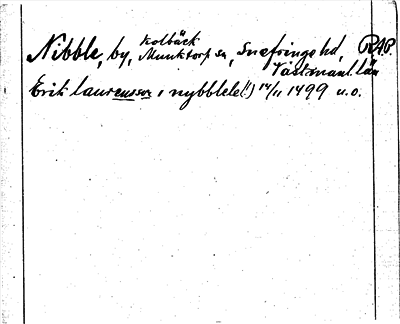 Nibble, by, Kolbäck Munktorp sn, Snefringe hd, RAP.
Västmanl. län
Erik laurensson i nybblele(!) 14/11 1499 u.o.